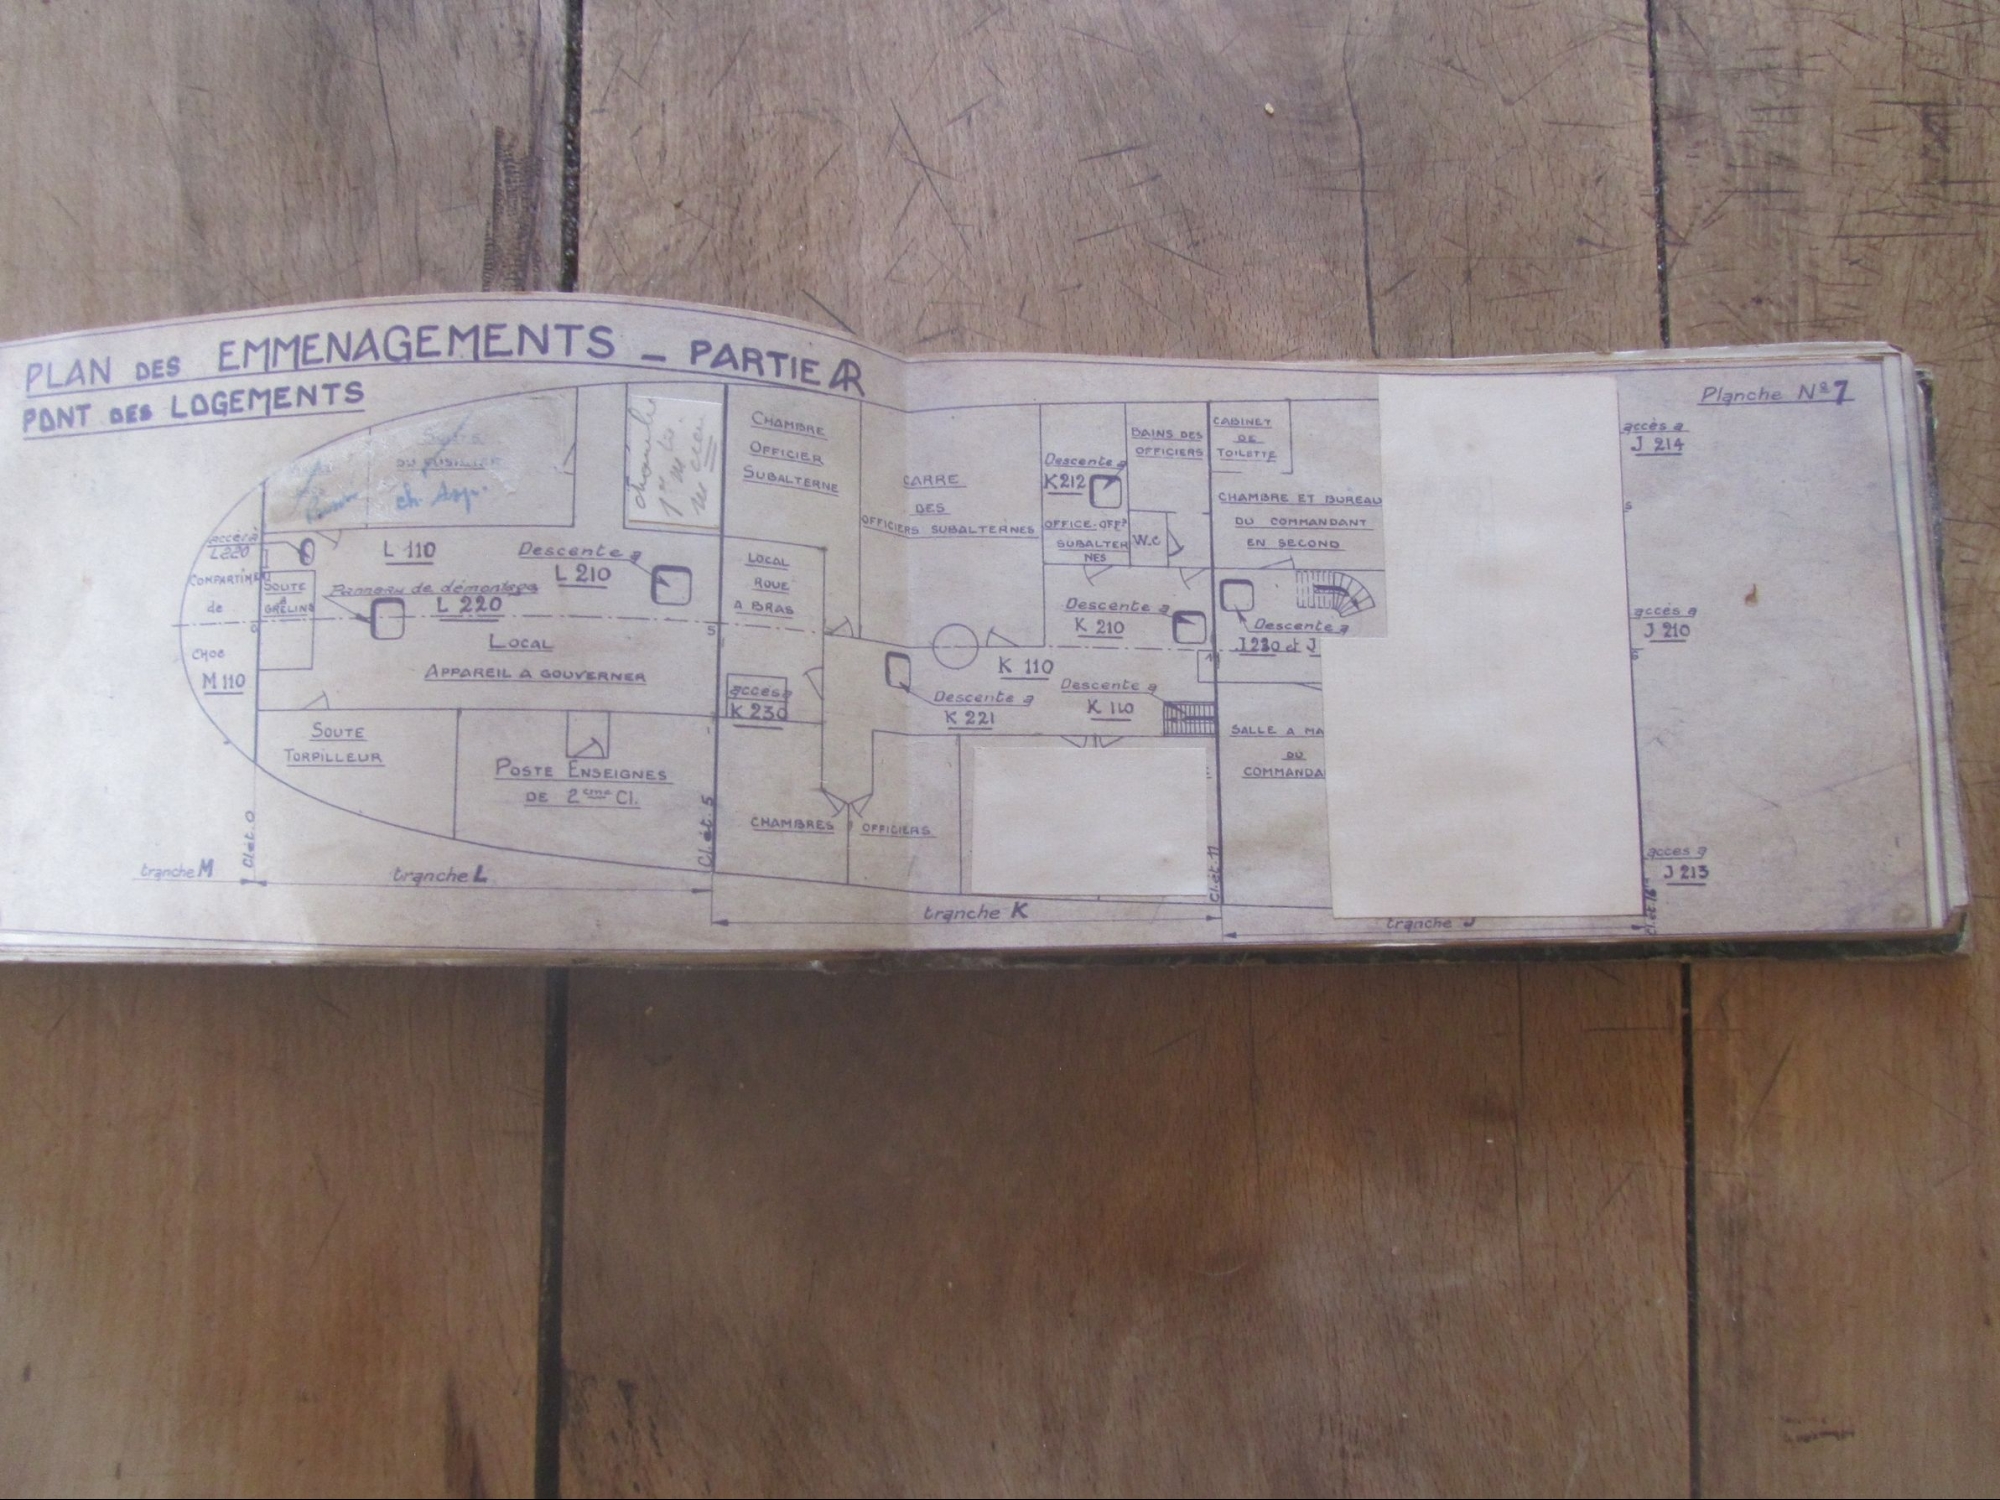 PLAN DES EMMENAGEMENTS _ PARTIE AR
PONT DES LOGEMENTS
Planche Nº 7
accès à
L220
COMPARTIME
de
CHOC
M 110
SOUTE
A
GRELINS
ch.
L 110
Panneau de démontage
L 220
Descente à
L 210
LOCAL
APPAREIL A GOUVERNER
SOUTE
TORPILLEUR
POSTE ENSEIGNES
DE 2ème Cl.
CHAMBRE
OFFICIER
SUBALTERNE
LOCAL
ROUE
A BRAS
accès à
K 230
CHAMBRES OFFICIERS
CARRE
DES
OFFICIERS SUBALTERNES
Descente à
K212
OFFICE-OFFrs
SUBALTER
NES
BAINS DES
OFFICIERS
W.C
Descente à
K 210
K 110
Descente à
K 221
Descente à
K 110
CABINET
DE
TOILETTE
CHAMBRE ET BUREAU
DU COMMANDANT
EN SECOND
Descente à
J 220 et J
SALLE A MA
DU
COMMANDA
accès à
J 214
accès à
J 210
accès à
J 213
Cl. ét. 0
Cl. ét. 5
Cl. ét. 11
tranche M
tranche L
tranche K
tranche J